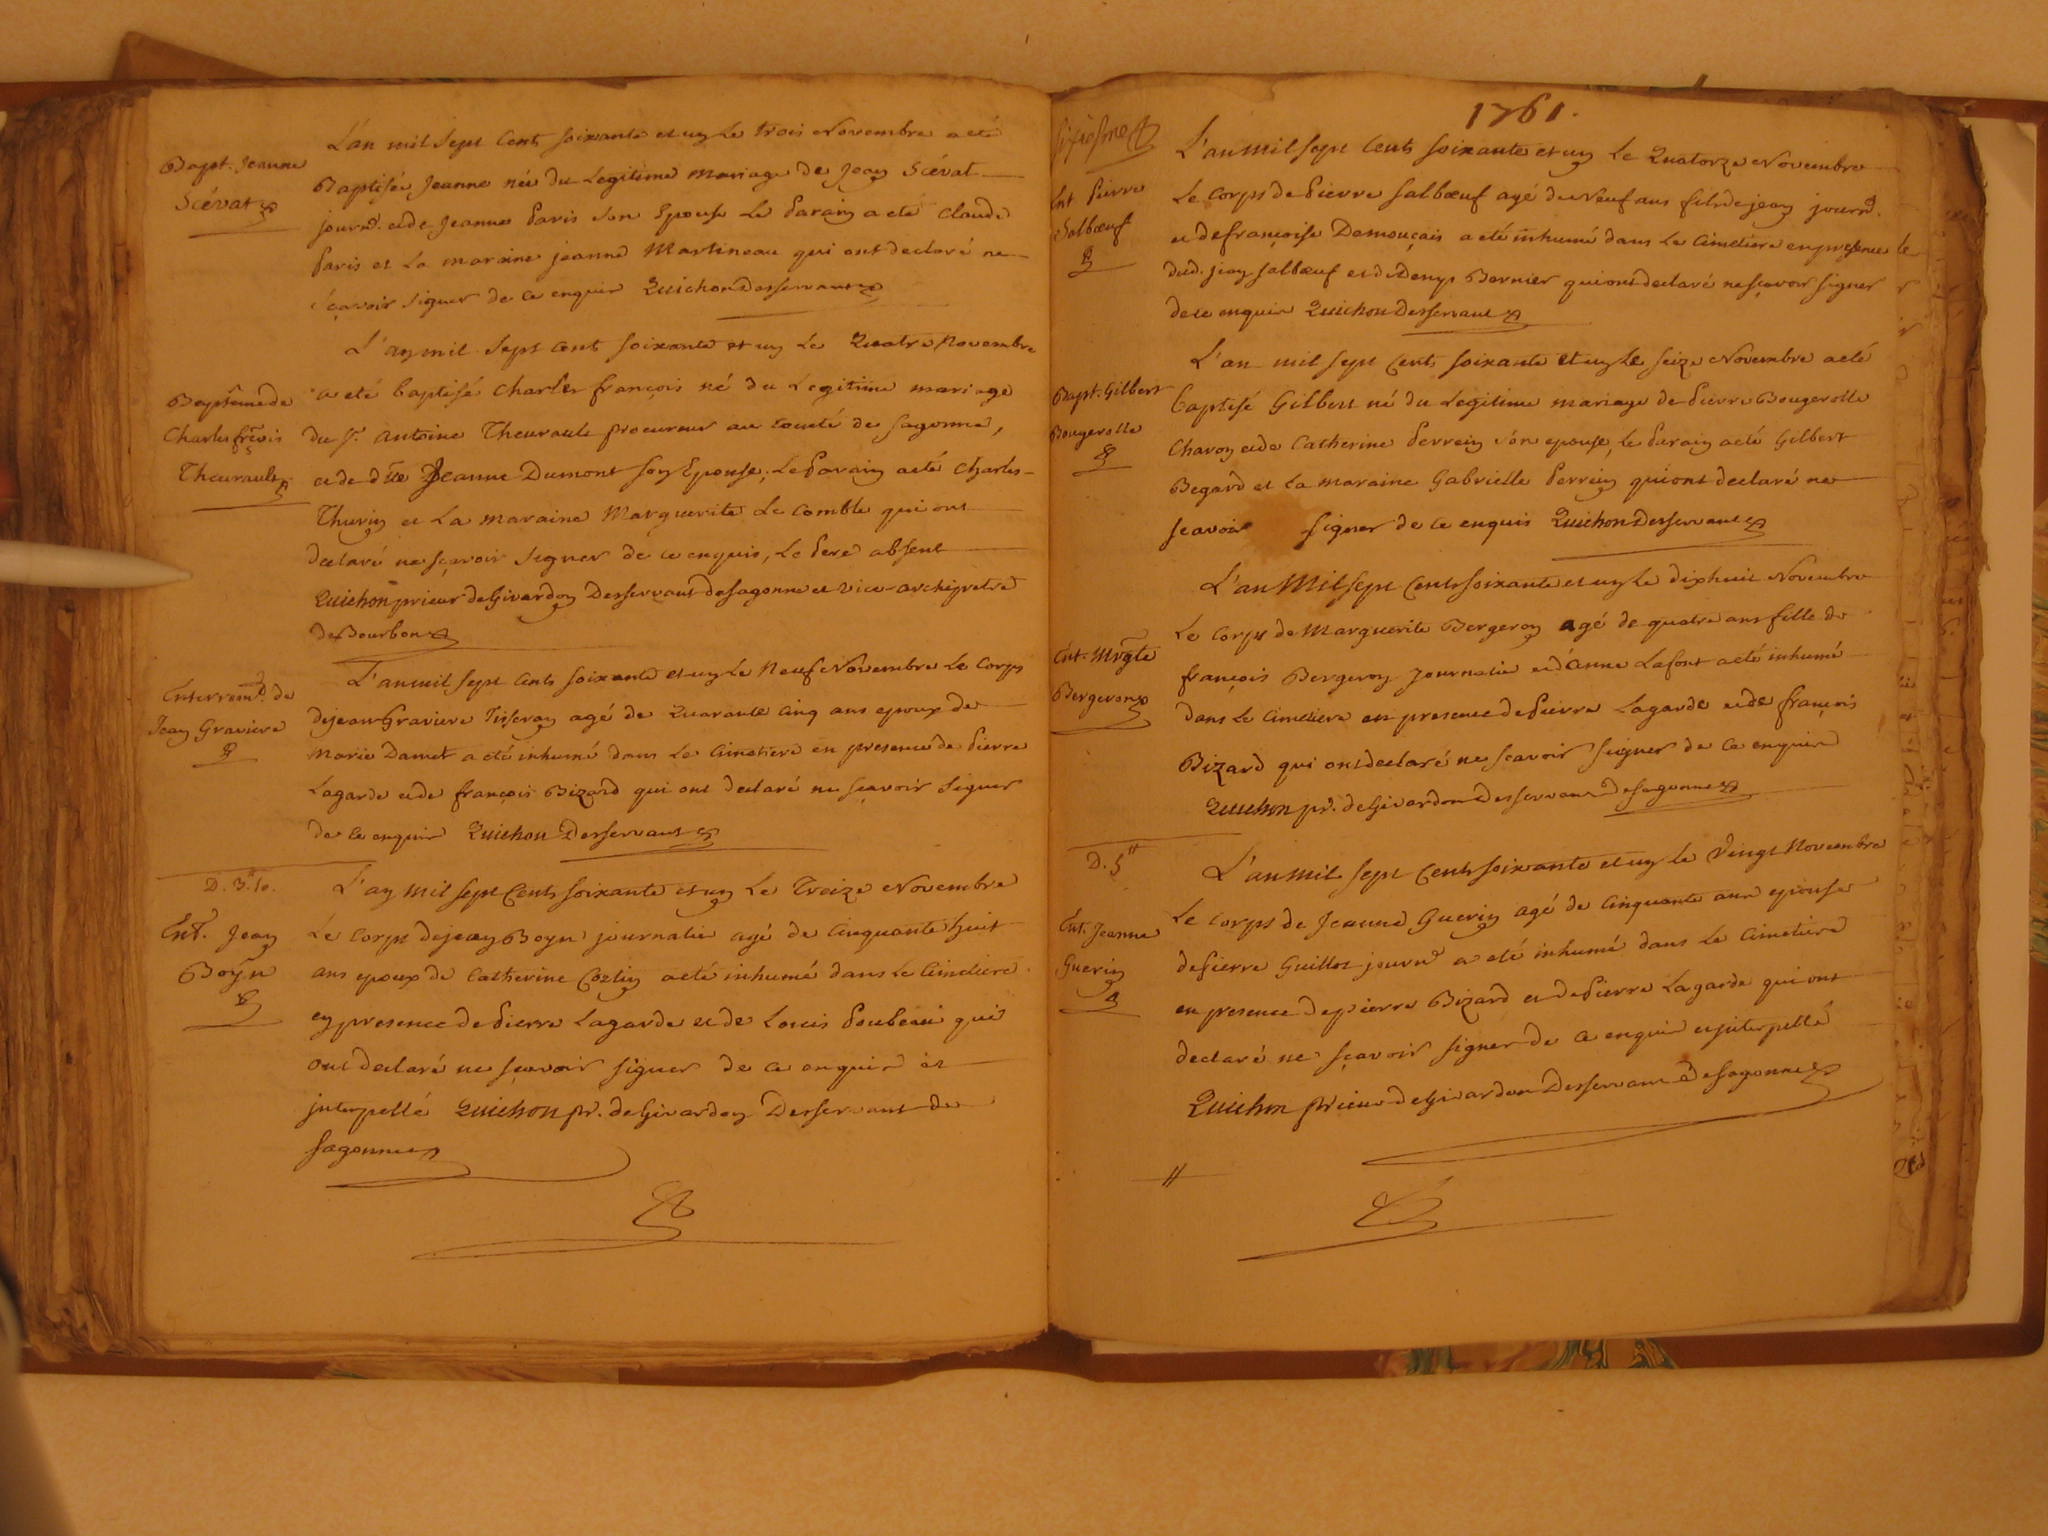 Bapt. Jeanne
Scévat
L'an mil sept cent soixante et un Le trois Novembre a eté
Baptisée Jeanne née du Legitime mariage de Jean Scévat
journr. et de Jeanne Paris son Epouse Le Parain a eté Claude
Paris et La maraine jeanne Martineau qui ont declaré ne
sçavoir signer de ce enquis Quichon Desservant
Baptême de
Charles frçois
Theurault
L'an mil sept cent soixante et un Le Quatre Novembre
a eté baptisé Charles françois né du Legitime mariage
du Sr. Antoine Theurault procureur au comté de Sagonne,
et de dlle Jeanne Dumont son Epouse, Le Parain a eté Charles
Thurin et La maraine Marguerite Le Comble qui ont
declaré ne sçavoir signer de ce enquis, Le Pere absent
Quichon prieur de Givardon Desservant de Sagonne et vice-archipretre
de Bourbon
Enterremt. de
Jean Graviere
L'an mil sept cents soixante et un Le Neuf Novembre Le Corps
de jean Graviere Tisseran agé de Quarante cinq ans epoux de
Marie Damet a eté inhumé dans Le Cimetiere en presence de Pierre
Lagarde et de françois Bizard qui ont declaré ne sçavoir signer
de ce enquis Quichon Desservant
D. 3. 10.
Ent. Jean
Boyn
L'an mil sept Cents soixante et un Le Treize Novembre
Le Corps de jean Boyn journalie agé de cinquante huit
ans epoux de Catherine a eté inhumé dans Le Cimetiere
en presence de Pierre Lagarde et de Louis qui
ont declaré ne sçavoir signer de ce enquis et
interpellé Quichon pr. de Givardon Desservant de
Sagonne
1761.
Ent Pierre
Salbœuf
L'an mil sept Cents soixante et un Le Quatorze Novembre
Le Corps de Pierre Salbœuf agé de Neuf ans fils de jean journr.
et de françoise Damouçais a eté inhumé dans Le Cimetiere en presence
dud. jean Salbœuf et de Denys Bernier qui ont declaré ne sçavoir signer
de ce enquis Quichon Desservant
Bapt. Gilbert
Bougerolle
L'an mil sept Cents soixante et un Le seize Novembre a eté
baptisé Gilbert né du Legitime mariage de Pierre Bougerolle
Charon et de Catherine Perrein son epouse, le Parain a eté Gilbert
Begard et La maraine Gabrielle Perrein qui ont declaré ne
scavoir signer de ce enquis Quichon Desservant
Ent. Mrgte
Bergeron
L'an Mil sept Cents soixante et un Le dixhuit Novembre
Le Corps de Marguerite Bergeron agé de quatre ans fille de
françois Bergeron journalie et d'Anne Lafont a eté inhumé
dans Le Cimetiere en presence de Pierre Lagarde et de françois
Bizard qui ont declaré ne scavoir signer de ce enquis
Quichon pr. de Givardon Desservant de Sagonne
D. 5
Ent. Jeanne
Guerin
L'an mil sept Cents soixante et un Le Vingt Novembre
Le Corps de Jeanne Guerin agé de cinquante ans epouse
de Pierre Guillot journr a eté inhumé dans Le Cimetiere
en presence de pierre Bizard et de Pierre Lagarde qui ont
declaré ne sçavoir signer de ce enquis et interpellé
Quichon prieur de Givardon Desservant de Sagonne